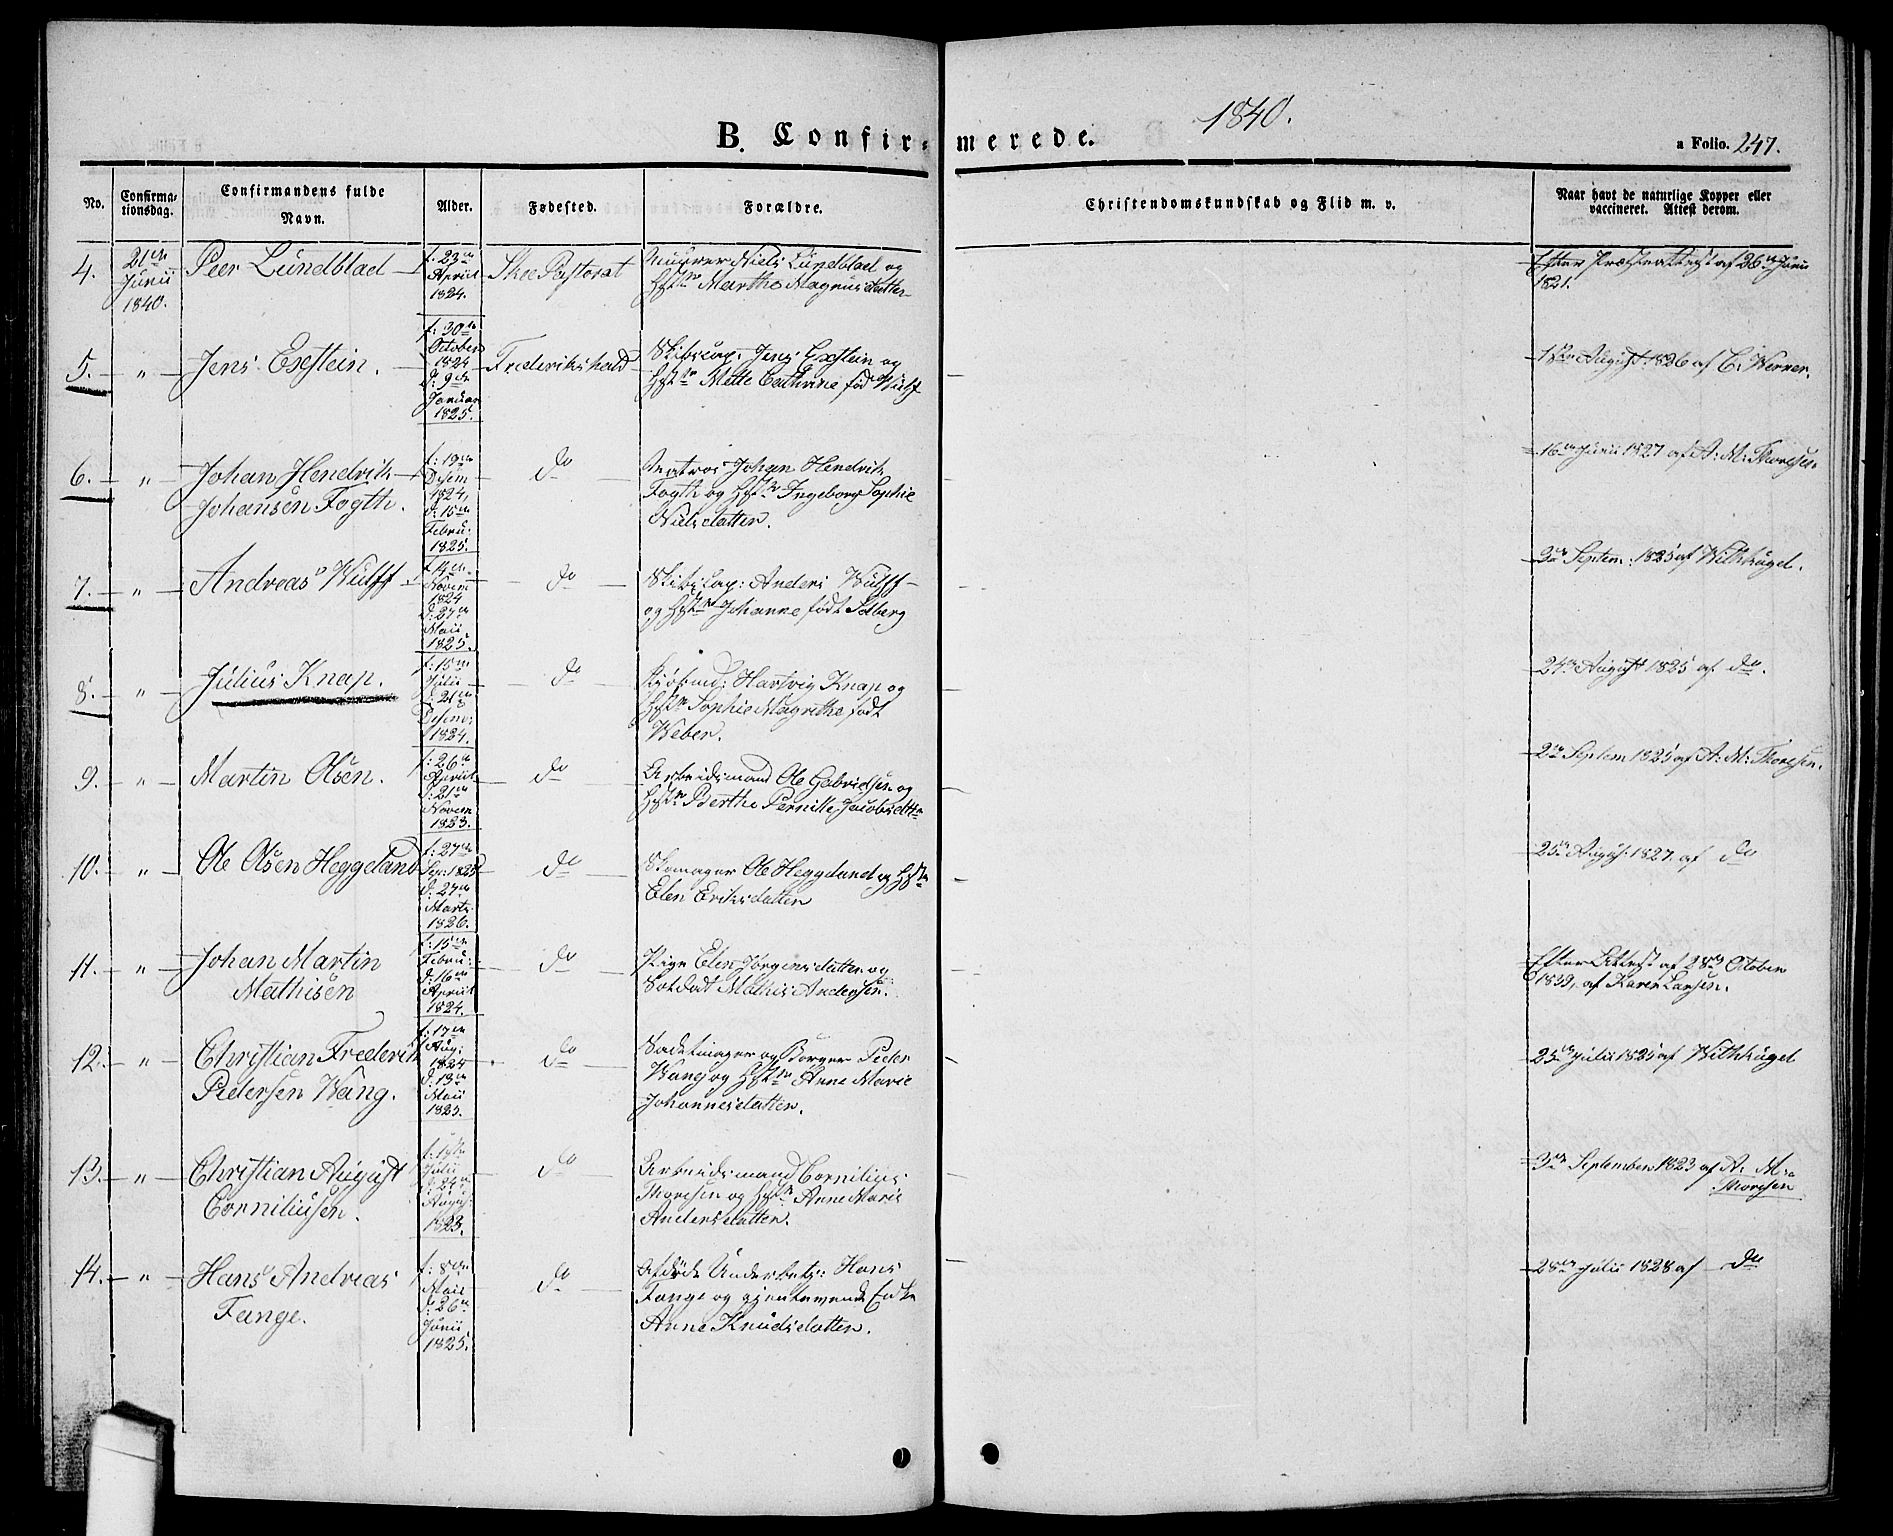 1840.
B. Confir-merede.
a Folio. 247.
No.
Confirma-
tionsdag.
Confirmandens fulde
Navn.
Alder.
Fødested.
Forældre.
Christendomskundskab og Flid m. v.
Naar havt de naturlige Kopper eller
vaccineret. Attest derom.
4.
21de
Junii
1840.
Peer Lundblad
f: 23de
April
1824.
Skee Pastorat
Muurer Niels Lundblad og
Hst Marthe Magnusdatter
Efter Præsteattest af 26de Junii
1821.
5. "
Jens Exstein.
f: 30te
October
1824
d: 9de
Januar
1825.
Frederikshald
Skibscap: Jens Exstein og
Hst Mette Cathrine fød Wulff
1ste August 1826 af C. Werner.
6. "
Johan Hendrik
Johansen Fogth.
f: 19de
Desem
1824,
d: 15de
Febru:
1825.
do
Matros Johan Hendrik
Fogth og Hst Ingeborg Sophie
Nielsdatter.
16de Junii 1827 af A: M: Thoresen.
7. "
Andreas Wulff
f. 14de
Novem
1824
d: 27de
Maii
1825.
do
Skibscap: Anders Wulff
og Hst Johanne født Solberg
3de Septem: 1825 af Withhugel.
8. "
Julius Knap.
f: 15de
Julii
d: 21de
Desem:
1824.
do
Kjøbmd: Hartvig Knap og
Hst Sophie Magrethe født
Weber.
24de August 1825 af do.
9. "
Martin Olsen.
f: 26de
April
d: 21de
Novem
1823.
do
Arbeidsmand Ole Gabrielsen og
Hst Berthe Pernille Jacobsdttr
2de Septem 1825 af A: M: Thoresen.
10. "
Ole Olsen Heggeland
f: 27de
Sep: 1825
d: 27de
Marts
1826.
do
Skomager Ole Heggeland og Hst
Elen Eriksdatter
25de Augus: 1827. af do
11. "
Johan Martin
Mathisen
f: 15de
Febru:
d: 16de
April
1824.
do
Pige Elen Jørgensdatter og
Soldat Mathis Andersen.
Efter Attest af 28de October
1839, af Karen Larsen.
12. "
Christian Frederik
Pedersen Wang.
f: 17de
Aug:
1824
d: 13de
Maii
1825.
do
Sadelmager og Borger Peder
Wang og Hst Anne Marie
Johannesdatter.
25de Julii 1825 af Withhugel
13. "
Christian August
Corniliusen.
Julii
d: 24de
Augus:
1823.
do
Arbeidsmand Cornilius
Thoresen og Hst Anne Marie
Andersdatter.
3de September 1823 af A. M:
Thoresen
14. "
Hans Andreas
Tange.
f: 8de
Maii
d: 26de
Junii
1825.
do
Afdøde Underbetj: Hans
Tange og gjenlevende Enke
Anne Knudsdatter.
28de Julii 1828 af do